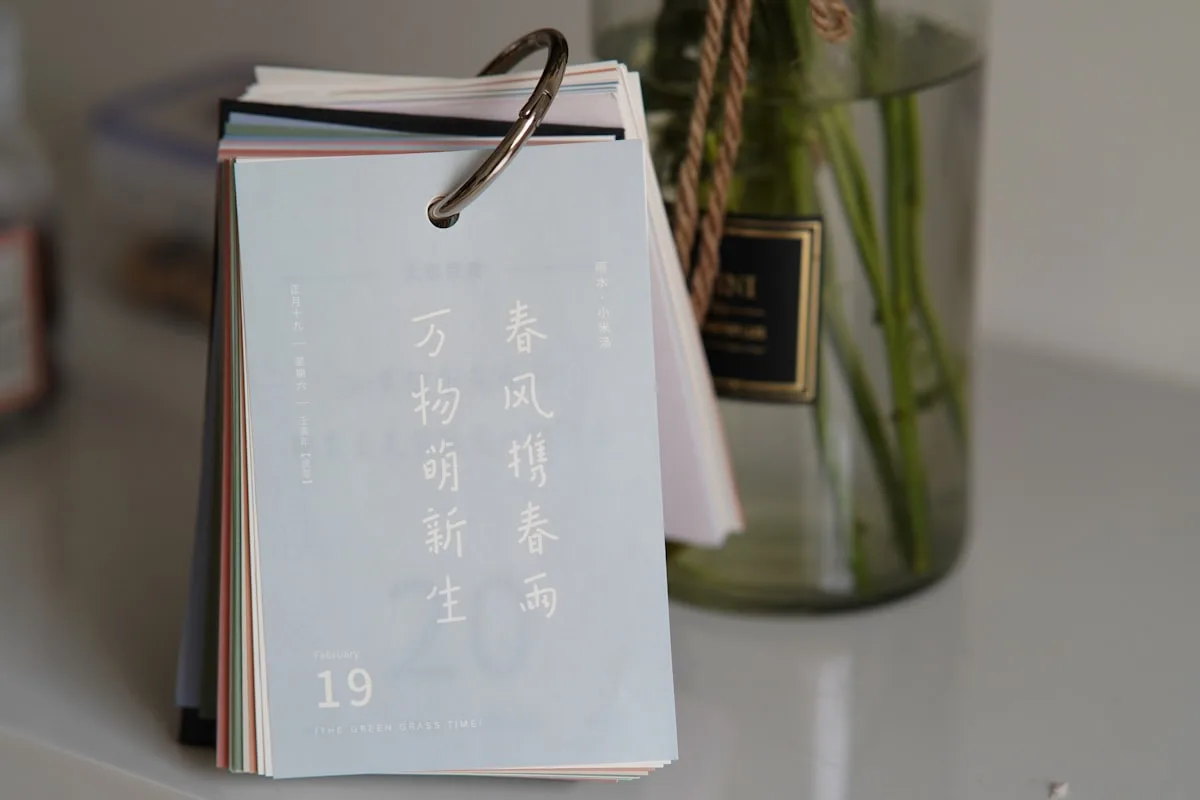 雨水·小米汤
春风携春雨
万物萌新生
正月十九 — 星期六 — 壬寅年
February
19
(THE GREEN GRASS TIME)
20